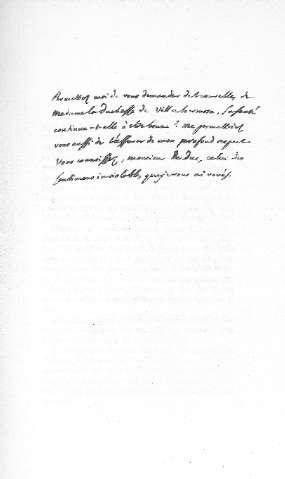 Permettez moi de vous demander des nouvelles de
Madame la duchesse de Villahermosa. Sa santé
continue-t-elle à être bonne? me permettriez
vous aussi de l'assurer de mon profond respect
Vous connoissez, monsieur le Duc, celui des
sentimens inviolables, que je vous ai voués.